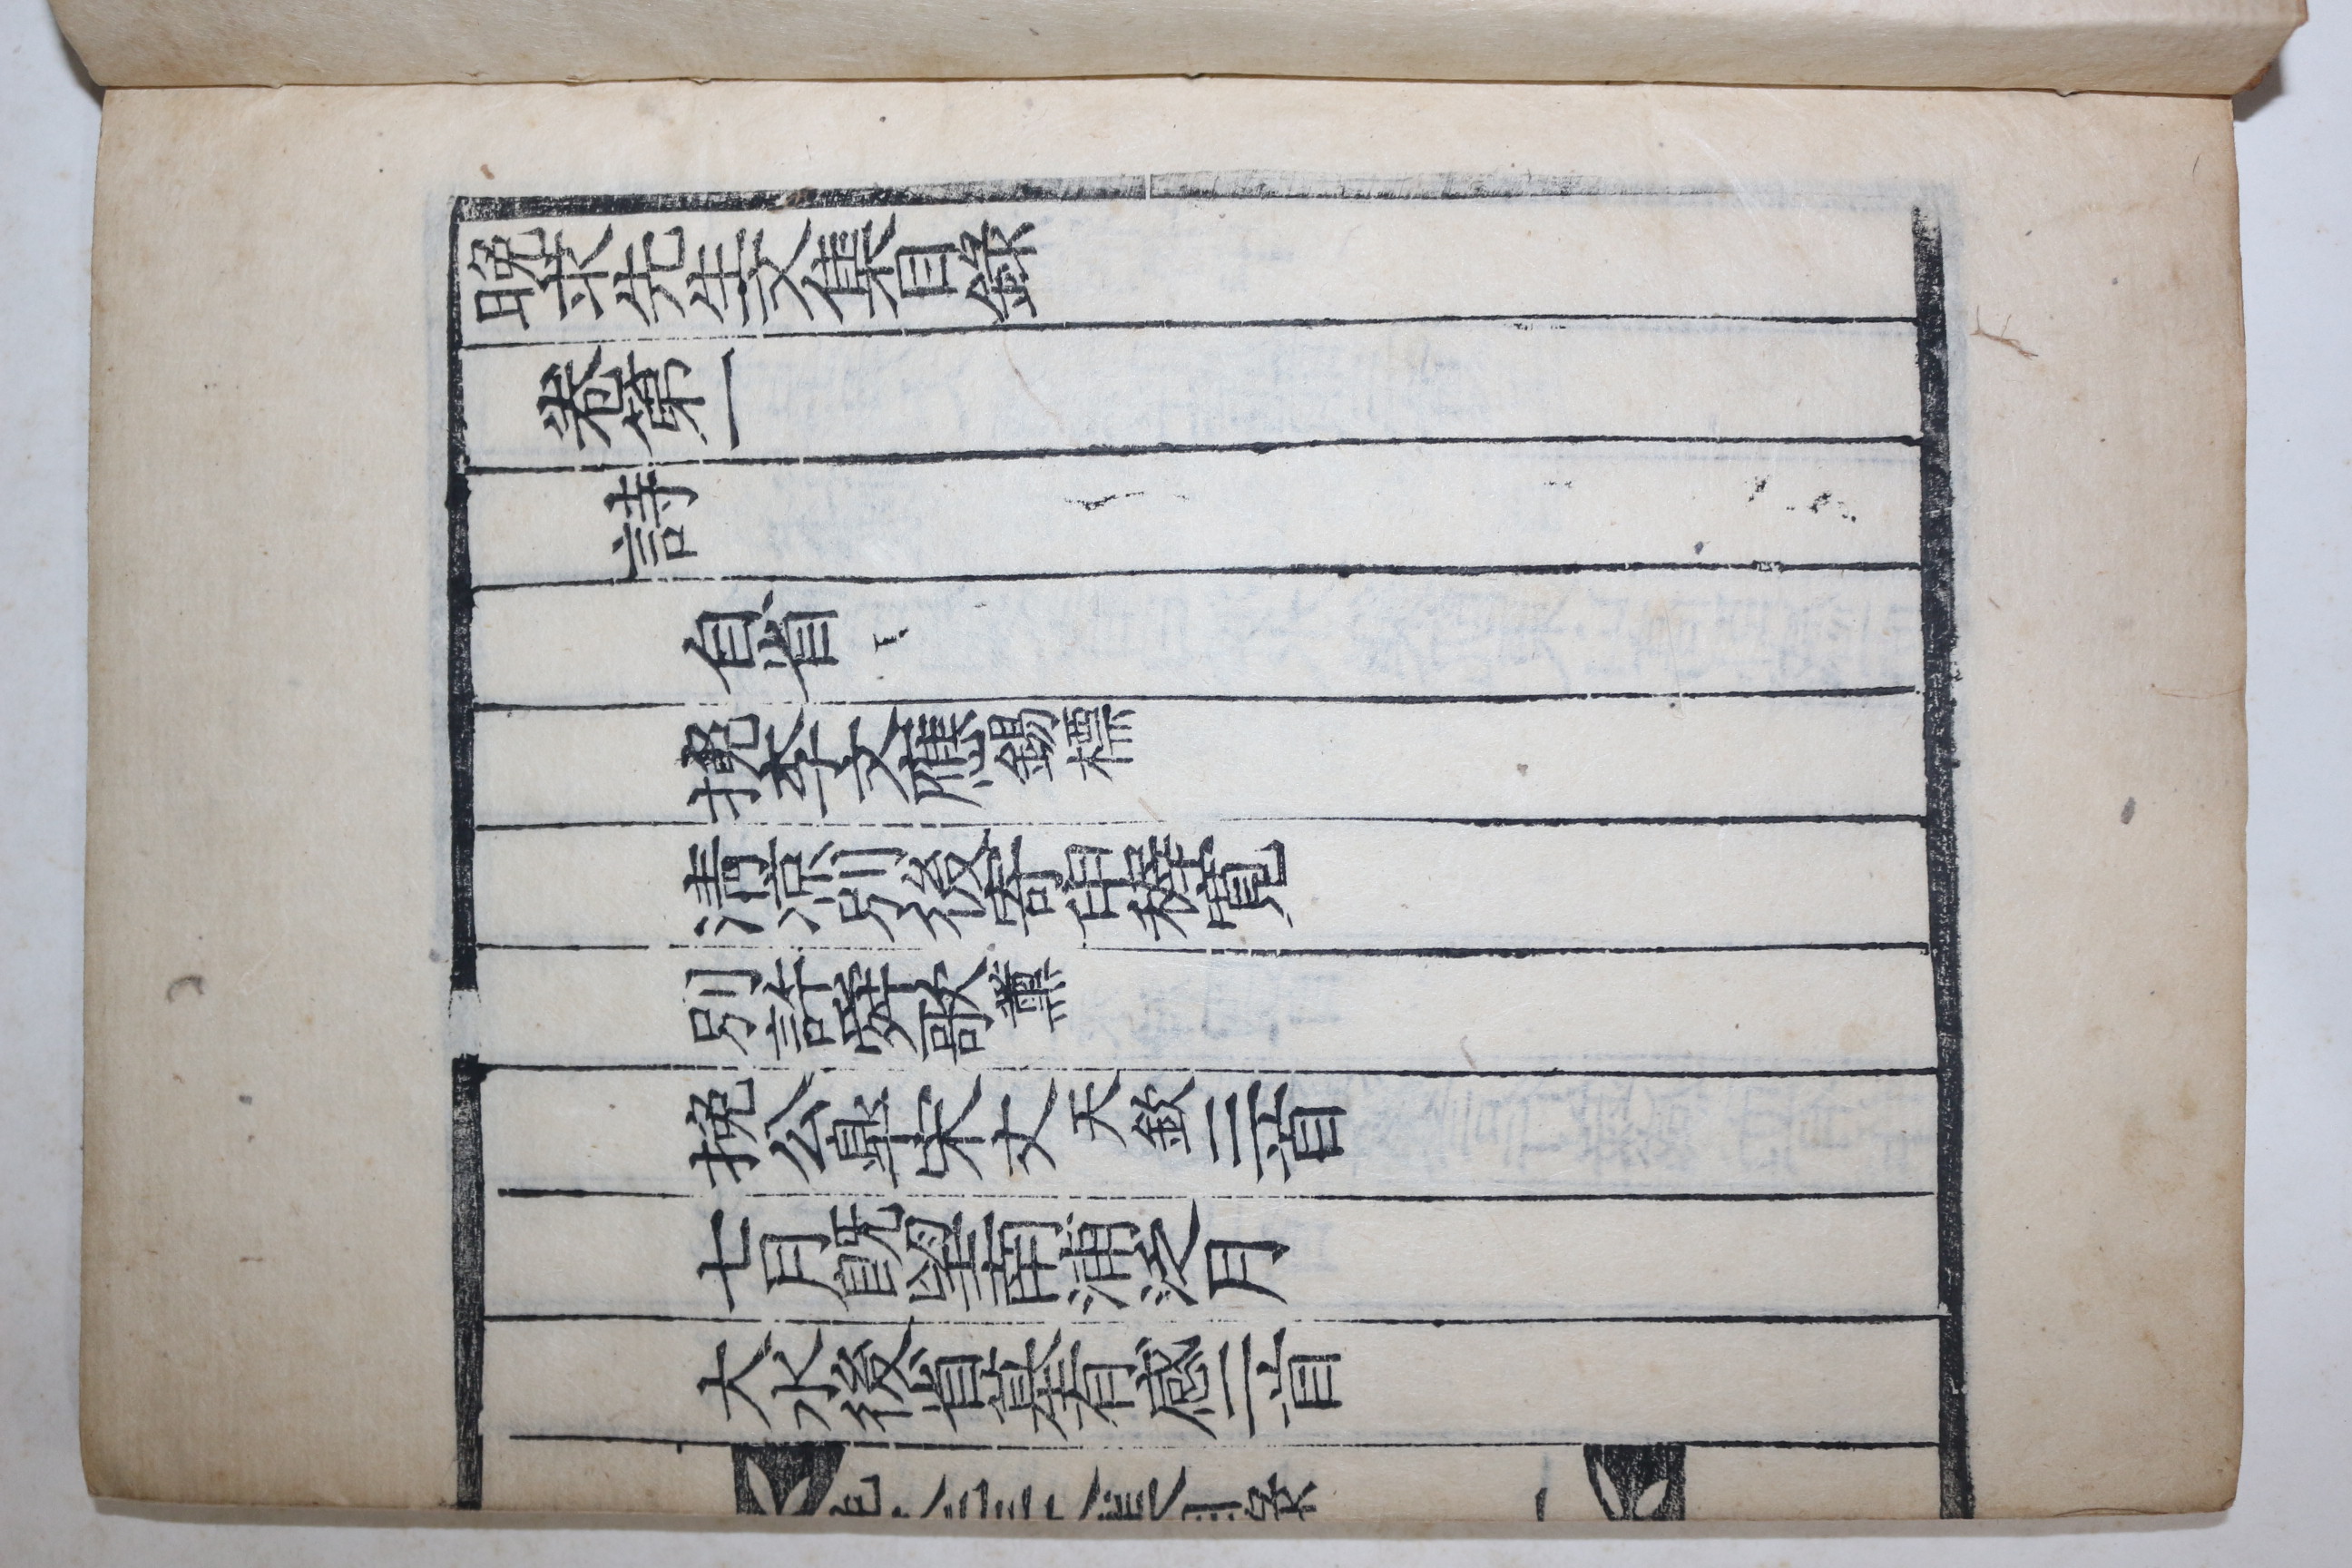 晩求先生文集目錄
卷第一
詩
自省
挽李文應錫標
淸凉別後寄申穉寬
別許舜歌薰
挽公皐宋丈天欽三首
七月旣望南浦泛月
大水後省墓有感二首